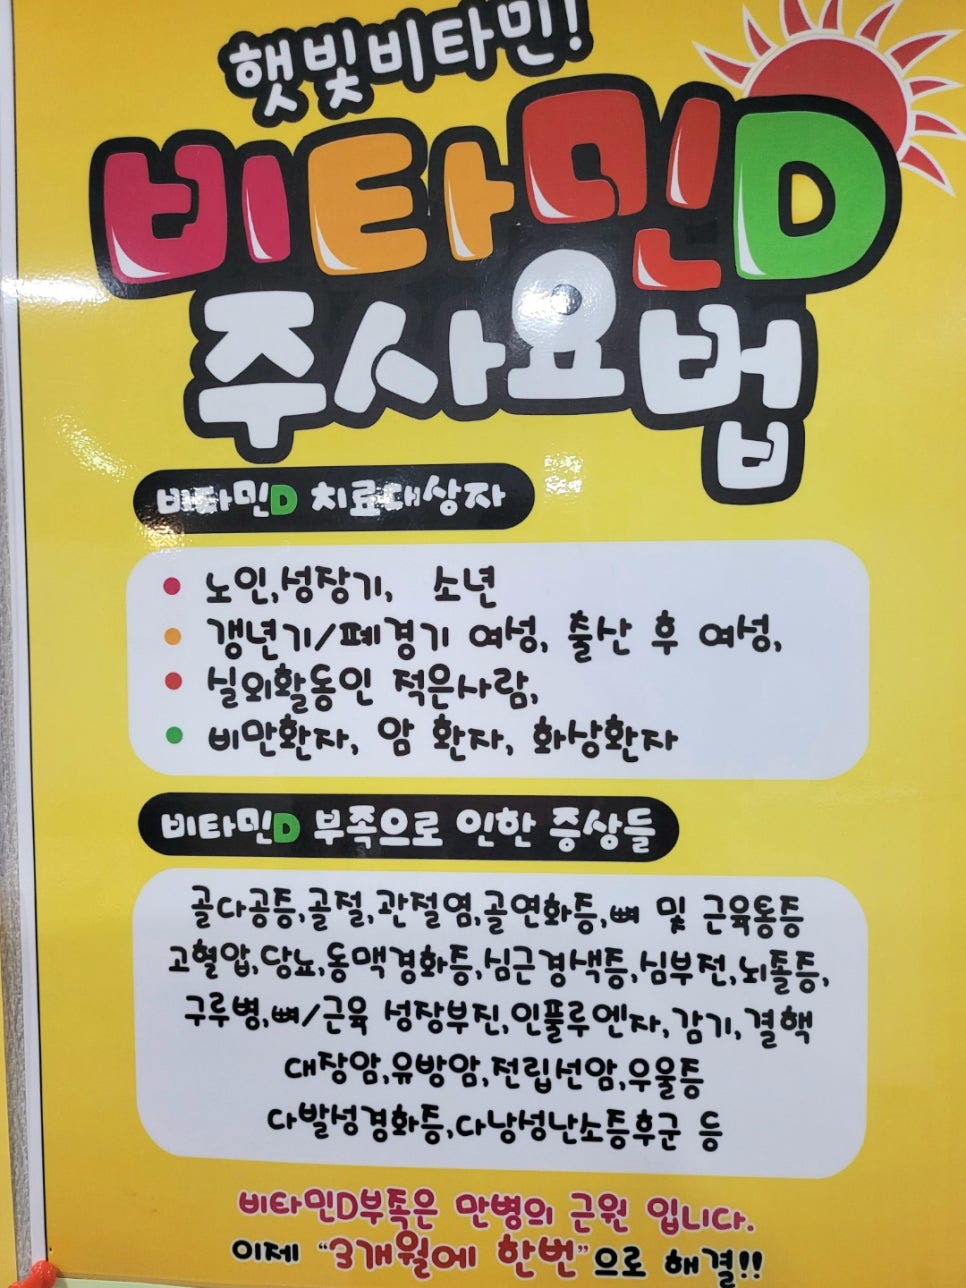 햇빛비타민!
비타민D
주사요법
비타민D 치료대상자
노인,성장기, 소년
갱년기/폐경기 여성, 출산 후 여성,
실외활동인 적은사람,
비만환자, 암 환자, 화상환자
비타민D 부족으로 인한 증상들
골다공증,골절,관절염,골연화증,뼈 및 근육통증
고혈압,당뇨,동맥경화증,심근경색증,심부전,뇌졸증,
구루병,뼈/근육 성장부진,인플루엔자,감기,결핵
대장암,유방암,전립선암,우울증
다발성경화증,다낭성난소증후군 등
비타민D부족은 만병의 근원 입니다.
이제 "3개월에 한번"으로 해결!!